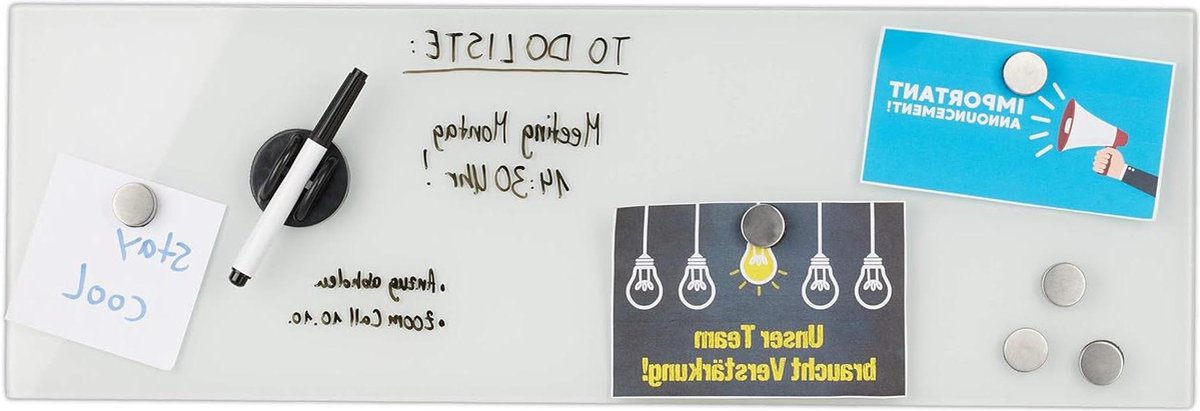 TO DO LISTE:
Meeting Montag
14:30 Uhr!
• Anzug abholen
• Zoom Call 10.10.
IMPORTANT
ANNOUNCEMENT!
Unser Team
braucht Verstärkung!
Stay
cool